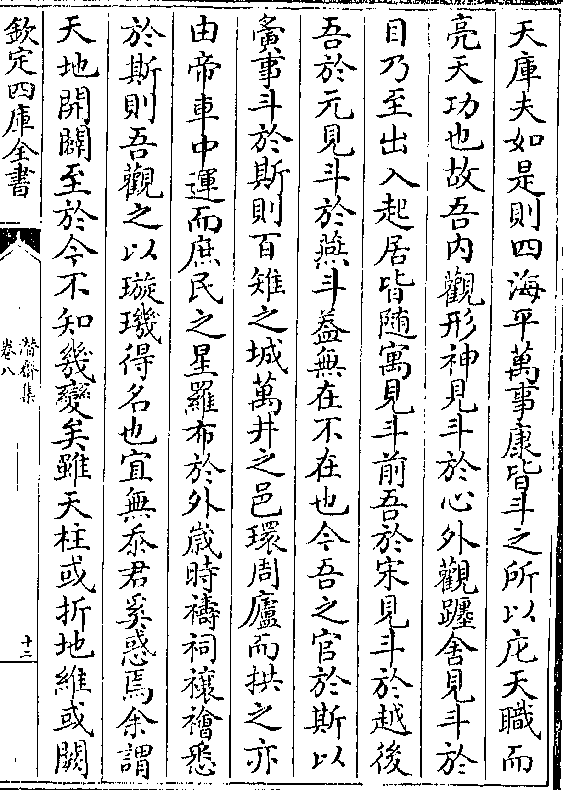 天庫夫如是則四海平萬事康皆斗之所以庀天職而
亮天功也故吾内觀形神見斗於心外觀躔舍見斗於
目乃至出入起居皆随寓見斗前吾於宋見斗於越後
吾於元見斗於燕斗葢無在不在也今吾之官於斯以
夤事斗於斯則百雉之城萬井之邑環周廬而拱之亦
由帝車中運而庶民之星羅布於外嵗時禱祠禳禬悉
於斯則吾觀之以璇璣得名也宜無忝君奚惑焉余謂
天地開闢至於今不知幾變矣雖天柱或折地維或闕
欽定四庫全書
潛齋集
卷八
十二